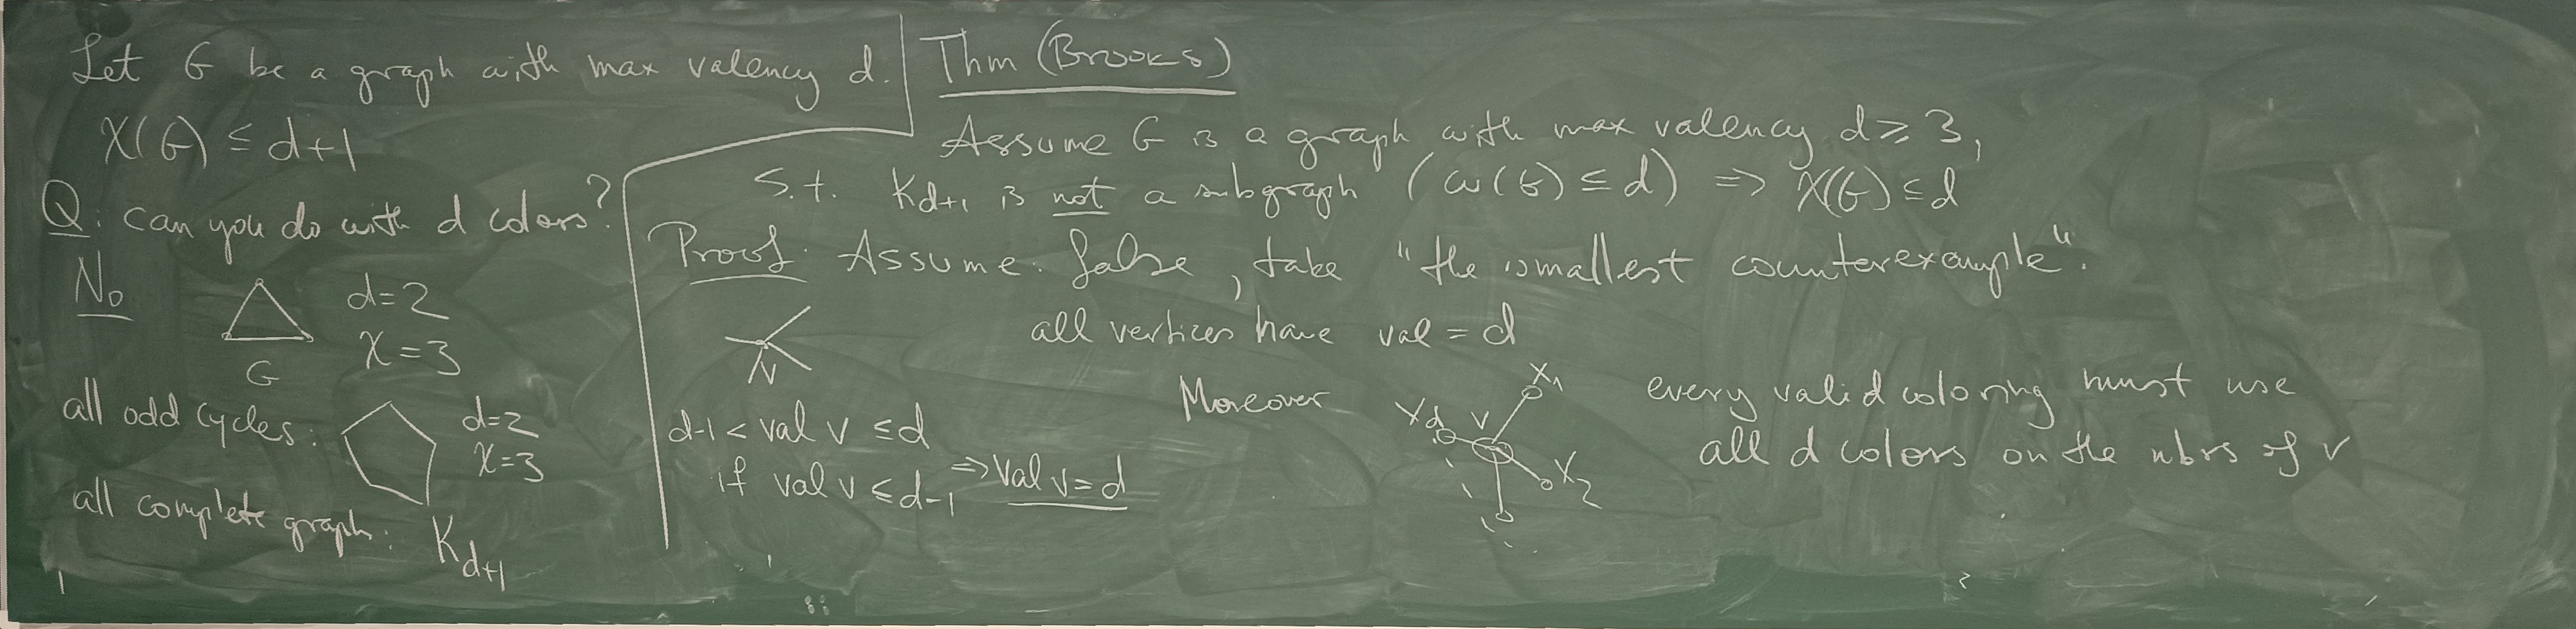 Let G be a graph with max valency d.
χ(G) ≤ d+1
Q: can you do with d colors?
No
d=2
χ=3
G
all odd cycles:
d=2
χ=3
all complete graph: K_{d+1}
Thm (Brooks)
Assume G is a graph with max valency d ≥ 3,
s.t. K_{d+1} is not a subgraph (ω(G) ≤ d) ⇒ χ(G) ≤ d
Proof: Assume false, take "the smallest counterexample".
all vertices have val = d
v
d-1 < val v ≤ d
if val v ≤ d-1 ⇒ val v = d
Moreover
x_1
x_d
v
x_2
every valid coloring must use
all d colors on the nbrs of v